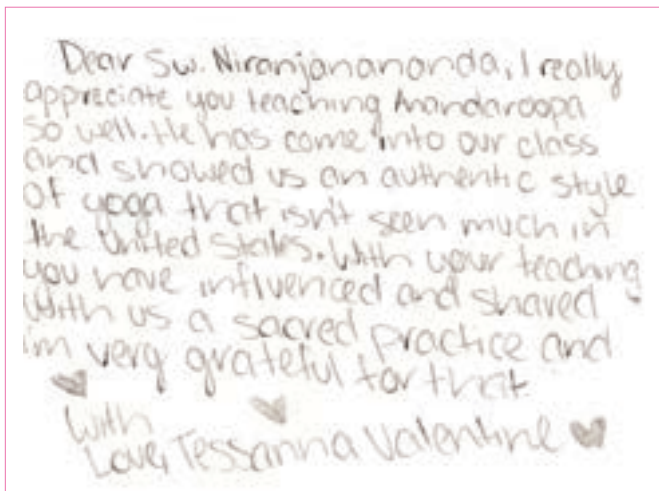 Dear Sw. Niranjanananda, I really
appreciate you teaching Anandaroopa
so well. He has come into our class
and showed us an authentic style
of yoga that isn't seen much in
the United States. With your teaching
you have influenced and shared
with us a sacred practice and
i'm very grateful for that
With
Love, Tessanna Valentine